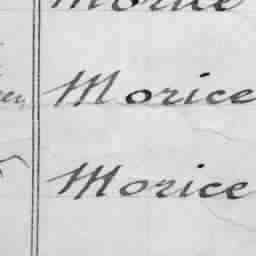 Morice
Morice